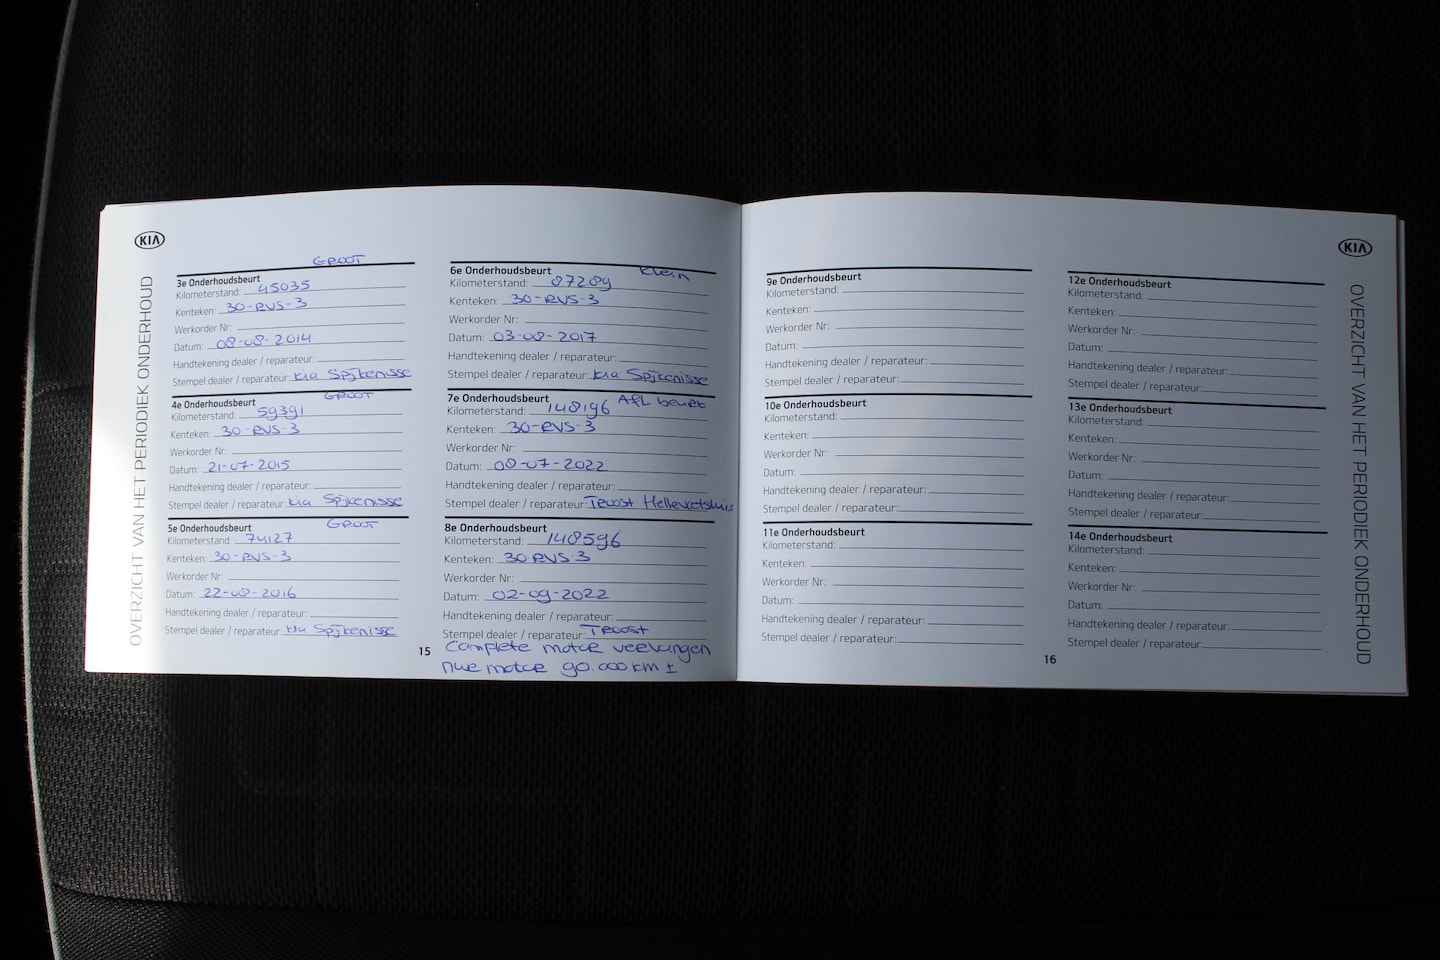 KIA
OVERZICHT VAN HET PERIODIEK ONDERHOUD
GROOT
3e Onderhoudsbeurt
Kilometerstand: 45035
Kenteken: 30-RVS-3
Werkorder Nr:
Datum: 08-08-2014
Handtekening dealer / reparateur:
Stempel dealer / reparateur: Kia Spijkenisse
GROOT
4e Onderhoudsbeurt
Kilometerstand: 59391
Kenteken: 30-RVS-3
Werkorder Nr:
Datum: 21-07-2015
Handtekening dealer / reparateur:
Stempel dealer / reparateur: Kia Spijkenisse
GROOT
5e Onderhoudsbeurt
Kilometerstand: 74127
Kenteken: 30-RVS-3
Werkorder Nr:
Datum: 22-08-2016
Handtekening dealer / reparateur:
Stempel dealer / reparateur: Kia Spijkenisse
6e Onderhoudsbeurt Klein
Kilometerstand: 87289
Kenteken: 30-RVS-3
Werkorder Nr:
Datum: 03-08-2017
Handtekening dealer / reparateur:
Stempel dealer / reparateur: Kia Spijkenisse
7e Onderhoudsbeurt
Kilometerstand: 148196 Afl beurt
Kenteken: 30-RVS-3
Werkorder Nr:
Datum: 08-07-2022
Handtekening dealer / reparateur:
Stempel dealer / reparateur: Troost Hellevoetsluis
8e Onderhoudsbeurt
Kilometerstand: 148596
Kenteken: 30-RVS-3
Werkorder Nr:
Datum: 02-09-2022
Handtekening dealer / reparateur:
Stempel dealer / reparateur: Troost
Complete motor vervangen
nwe motor 90.000 km ±
15
9e Onderhoudsbeurt
Kilometerstand:
Kenteken:
Werkorder Nr:
Datum:
Handtekening dealer / reparateur:
Stempel dealer / reparateur:
10e Onderhoudsbeurt
Kilometerstand:
Kenteken:
Werkorder Nr:
Datum:
Handtekening dealer / reparateur:
Stempel dealer / reparateur:
11e Onderhoudsbeurt
Kilometerstand:
Kenteken:
Werkorder Nr:
Datum:
Handtekening dealer / reparateur:
Stempel dealer / reparateur:
12e Onderhoudsbeurt
Kilometerstand:
Kenteken:
Werkorder Nr:
Datum:
Handtekening dealer / reparateur:
Stempel dealer / reparateur:
13e Onderhoudsbeurt
Kilometerstand:
Kenteken:
Werkorder Nr:
Datum:
Handtekening dealer / reparateur:
Stempel dealer / reparateur:
14e Onderhoudsbeurt
Kilometerstand:
Kenteken:
Werkorder Nr:
Datum:
Handtekening dealer / reparateur:
Stempel dealer / reparateur:
16
KIA
OVERZICHT VAN HET PERIODIEK ONDERHOUD